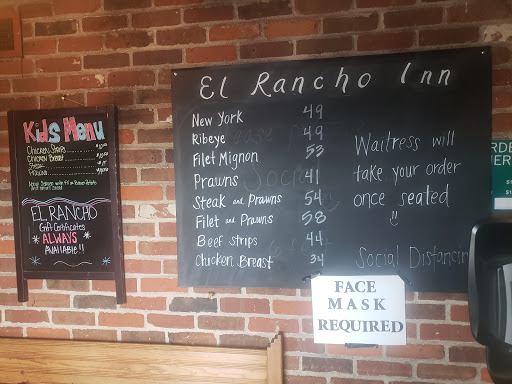 Kids Menu
Chicken Strips
Chicken Breast
Steak
Prawns
EL RANCHO
Gift Certificates
ALWAYS
AVAILABLE!!
El Rancho Inn
New York 49
Ribeye 49
Filet Mignon 53
Prawns 41
Steak and Prawns 54
Filet and Prawns 58
Beef strips 44
Chicken Breast 34
Waitress will
take your order
once seated
!!
Social Distancin
FACE
MASK
REQUIRED